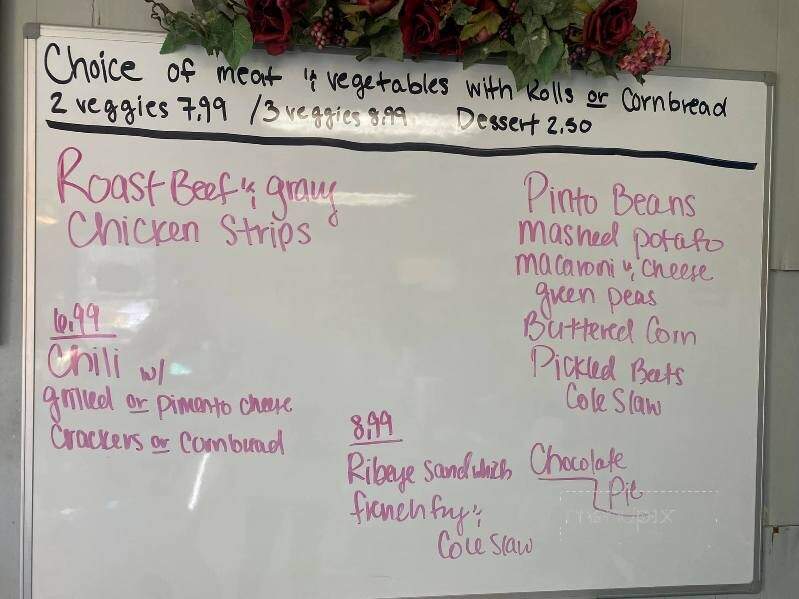 Choice of meat & vegetables with Rolls or Cornbread
2 veggies 7,99 / 3 veggies 8,99 Dessert 2,50
Roast Beef & gravy
Chicken Strips
6,99
Chili w/
grilled or Pimento cheese
Crackers or Cornbread
8,99
Ribeye Sandwhich
french fry &
Cole Slaw
Pinto Beans
mashed potato
macaroni & cheese
green peas
Buttered Corn
Pickled Beets
Cole Slaw
Chocolate
Pie